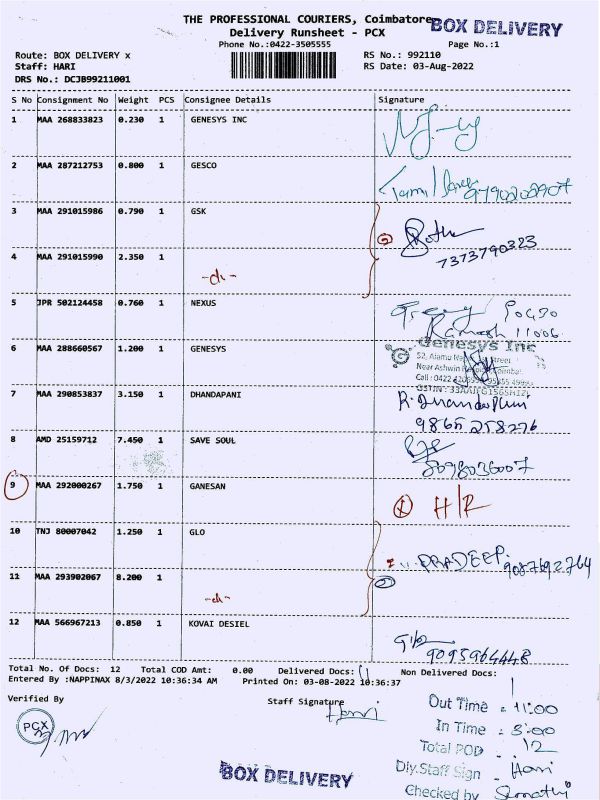 THE PROFESSIONAL COURIERS, Coimbatore
BOX DELIVERY
Delivery Runsheet - PCX
Phone No.:0422-3505555
Page No.:1
Route: BOX DELIVERY x
RS No.: 992110
Staff: HARI
RS Date: 03-Aug-2022
DRS No.: DCJB99211001
S No Consignment No Weight PCS Consignee Details Signature
1 MAA 268833823 0.230 1 GENESYS INC
2 MAA 287212753 0.800 1 GESCO
3 MAA 291015986 0.790 1 GSK
7373790323
4 MAA 291015990 2.350 1
-do-
5 JPR 502124458 0.760 1 NEXUS
Ramesh 11006.
6 MAA 288660567 1.200 1 GENESYS
Genesys Inc
Near Ashwin
7 MAA 290853837 3.150 1 DHANDAPANI
9865258276
8 AMD 25159712 7.450 1 SAVE SOUL
8098036007
9 MAA 292000267 1.750 1 GANESAN
H/R
10 TNJ 80007042 1.250 1 GLO
PRADEEP. 9087692764
11 MAA 293902067 8.200 1
-do-
12 MAA 566967213 0.850 1 KOVAI DESIEL
9095964448
Total No. Of Docs: 12 Total COD Amt: 0.00 Delivered Docs: 11 Non Delivered Docs: 1
Entered By :NAPPINAX 8/3/2022 10:36:34 AM Printed On: 03-08-2022 10:36:37
Verified By
Staff Signature
Hari
PCX
Out Time : 11:00
In Time : 3:00
Total POD - 12
Dly.Staff Sign - Hari
Checked by
BOX DELIVERY